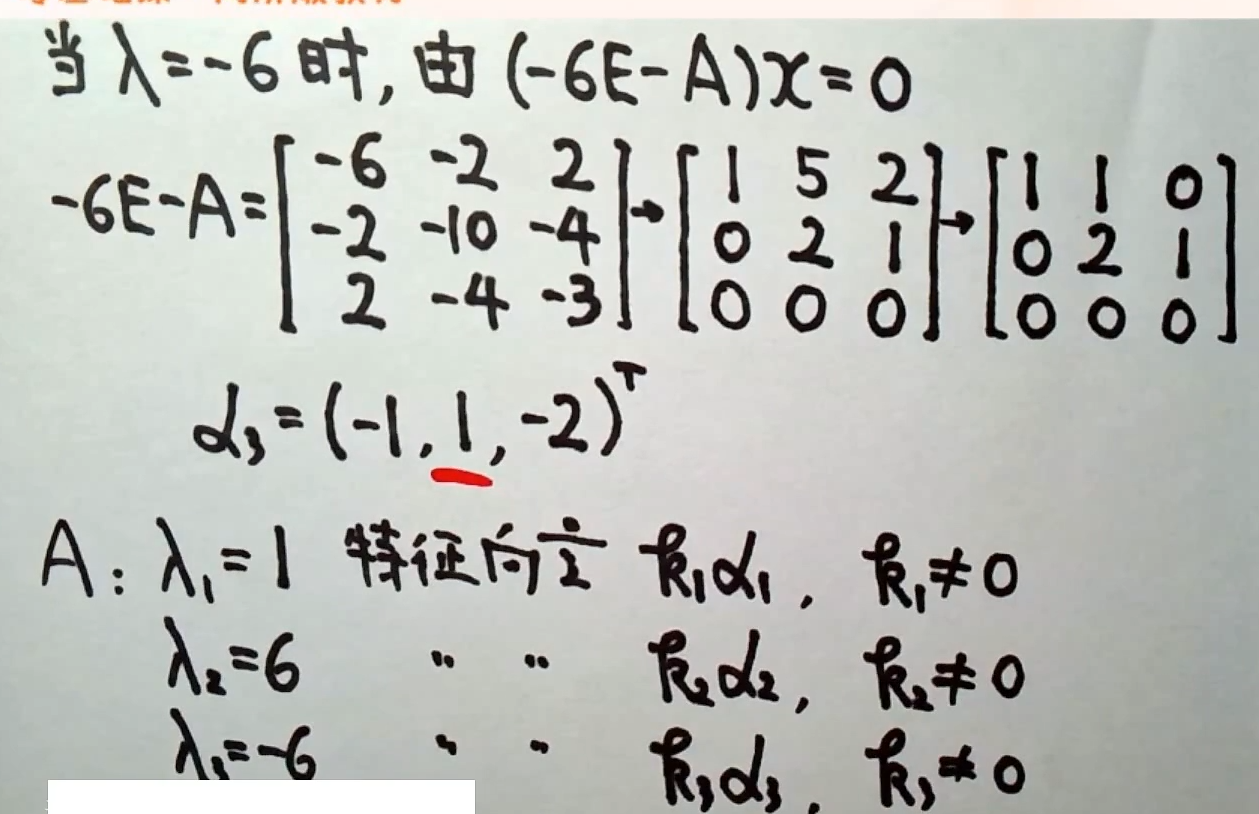 当 λ=-6 时, 由 (-6E-A)x=0
-6E-A= [ -6 -2 2 ] → [ 1 5 2 ] → [ 1 1 0 ]
[ -2 -10 -4 ] [ 0 2 1 ] [ 0 2 1 ]
[ 2 -4 -3 ] [ 0 0 0 ] [ 0 0 0 ]
α₃=(-1,1,-2)ᵀ
A: λ₁=1 特征向量 k₁α₁, k₁≠0
λ₂=6 〃 〃 k₂α₂, k₂≠0
λ₃=-6 〃 〃 k₃α₃, k₃≠0